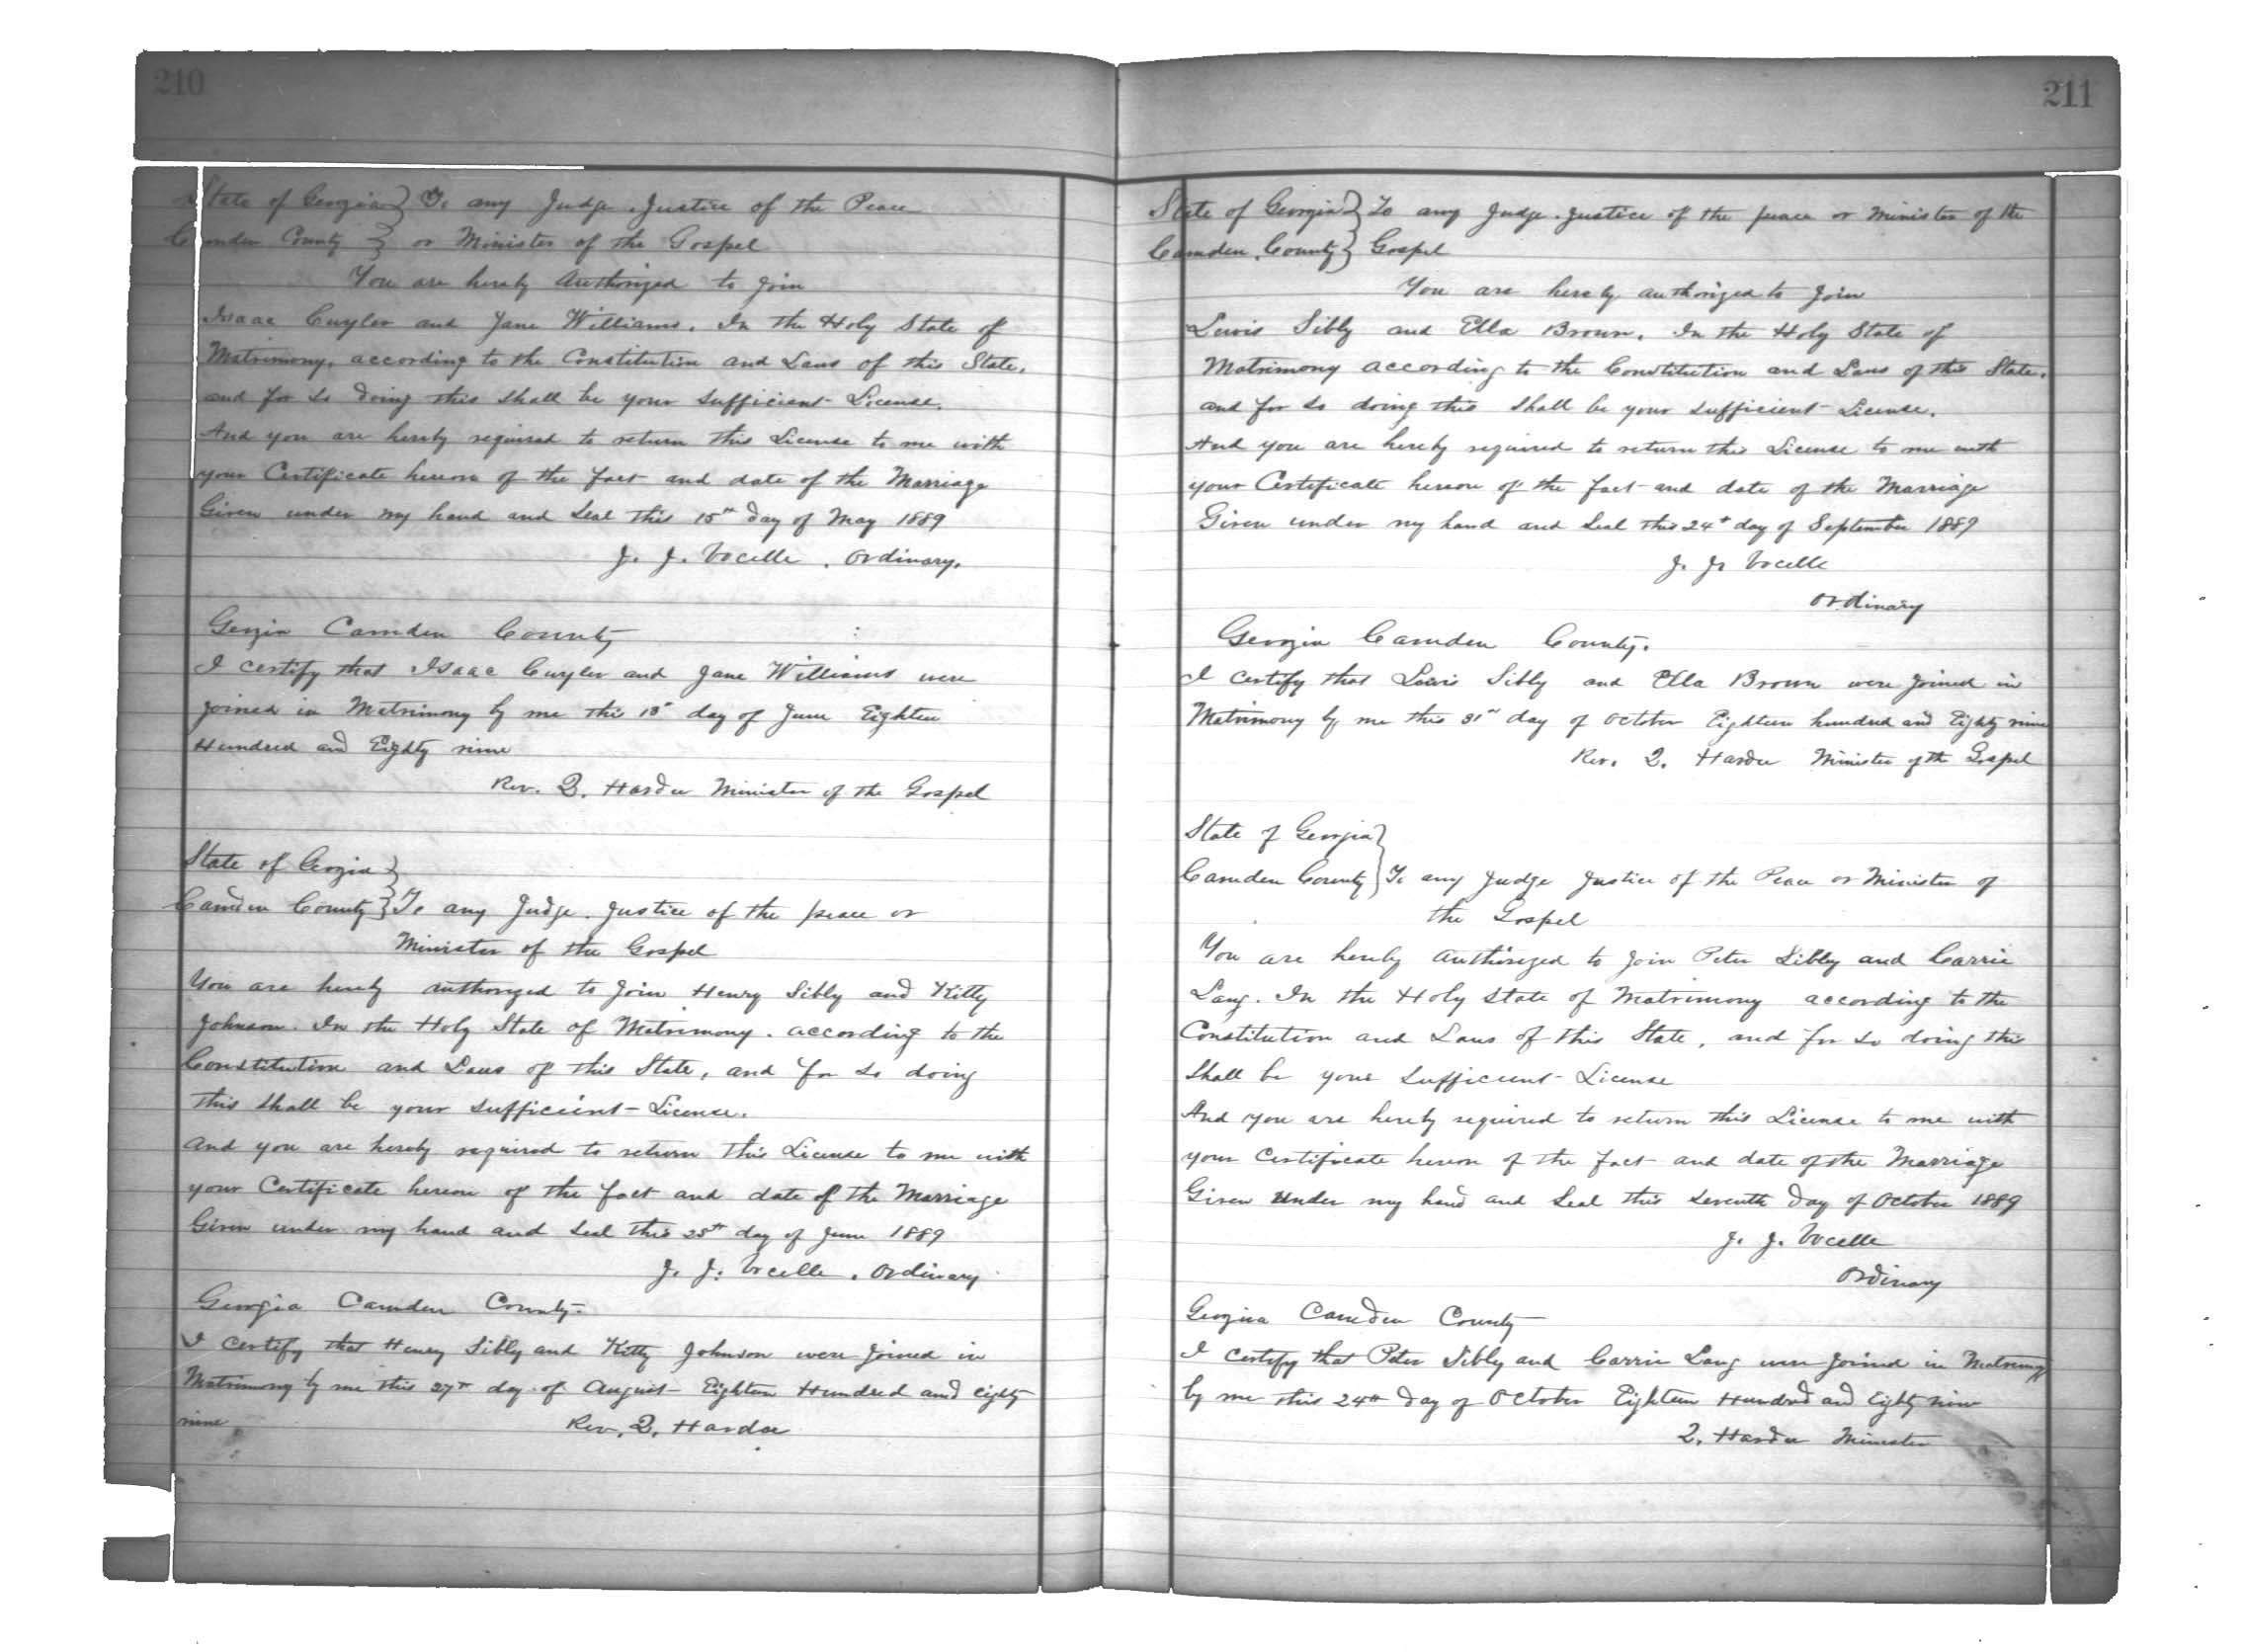 210
State of Georgia } To any Judge. Justice of the Peace
Camden County } or Minister of the Gospel
You are hereby Authorized to Join
Isaac Cuyler and Jane Williams. In the Holy State of
Matrimony, according to the Constitution and Laws of this State.
and for so doing this shall be your sufficient License.
And you are hereby required to return this License to me with
your Certificate hereon of the fact and date of the Marriage
Given under my hand and seal this 15th day of May 1889
J. J. Vocelle . Ordinary.
Georgia Camden County
I certify that Isaac Cuyler and Jane Williams were
joined in Matrimony by me this day of June Eighteen
Hundred and Eighty nine
Rev. Q. Hardee Minister of the Gospel
State of Georgia }
Camden County } To any Judge. Justice of the peace or
Minister of the Gospel
You are hereby authorized to Join Henry Sibly and Kitty
Johnson. In the Holy State of Matrimony. according to the
Constitution and Laws of this State, and for so doing
this shall be your sufficient License.
and you are hereby required to return this License to me with
your Certificate hereon of the fact and date of the Marriage
Given under my hand and seal this 28th day of June 1889
J. J. Vocelle . Ordinary
Georgia Camden County.
I certify that Henry Sibly and Kitty Johnson were joined in
Matrimony by me this 27th day of August Eighteen Hundred and eighty
nine
Rev. Q. Hardee
211
State of Georgia } To any Judge. Justice of the peace or Minister of the
Camden County } Gospel
You are hereby authorized to Join
Lewis Sibly and Ella Brown. In the Holy State of
Matrimony according to the Constitution and Laws of this State.
and for so doing this shall be your sufficient License.
And you are hereby required to return this License to me with
your Certificate hereon of the fact and date of the Marriage
Given under my hand and seal this 24th day of September 1889
J. J. Vocelle
Ordinary
Georgia Camden County.
I certify that Lewis Sibly and Ella Brown were joined in
Matrimony by me this 31st day of October Eighteen hundred and Eighty nine
Rev. Q. Hardee Minister of the Gospel
State of Georgia }
Camden County } To any Judge Justice of the Peace or Minister of
the Gospel
You are hereby authorized to Join Peter Sibly and Carrie
Lang. In the Holy state of Matrimony according to the
Constitution and Laws of this State, and for so doing this
shall be your sufficient License
And you are hereby required to return this License to me with
your Certificate hereon of the fact and date of the Marriage
Given Under my hand and seal this seventh day of October 1889
J. J. Vocelle
Ordinary
Georgia Camden County
I certify that Peter Sibly and Carrie Lang were joined in Matrimony
by me this 24th day of October Eighteen Hundred and Eighty nine
Q. Hardee Minister